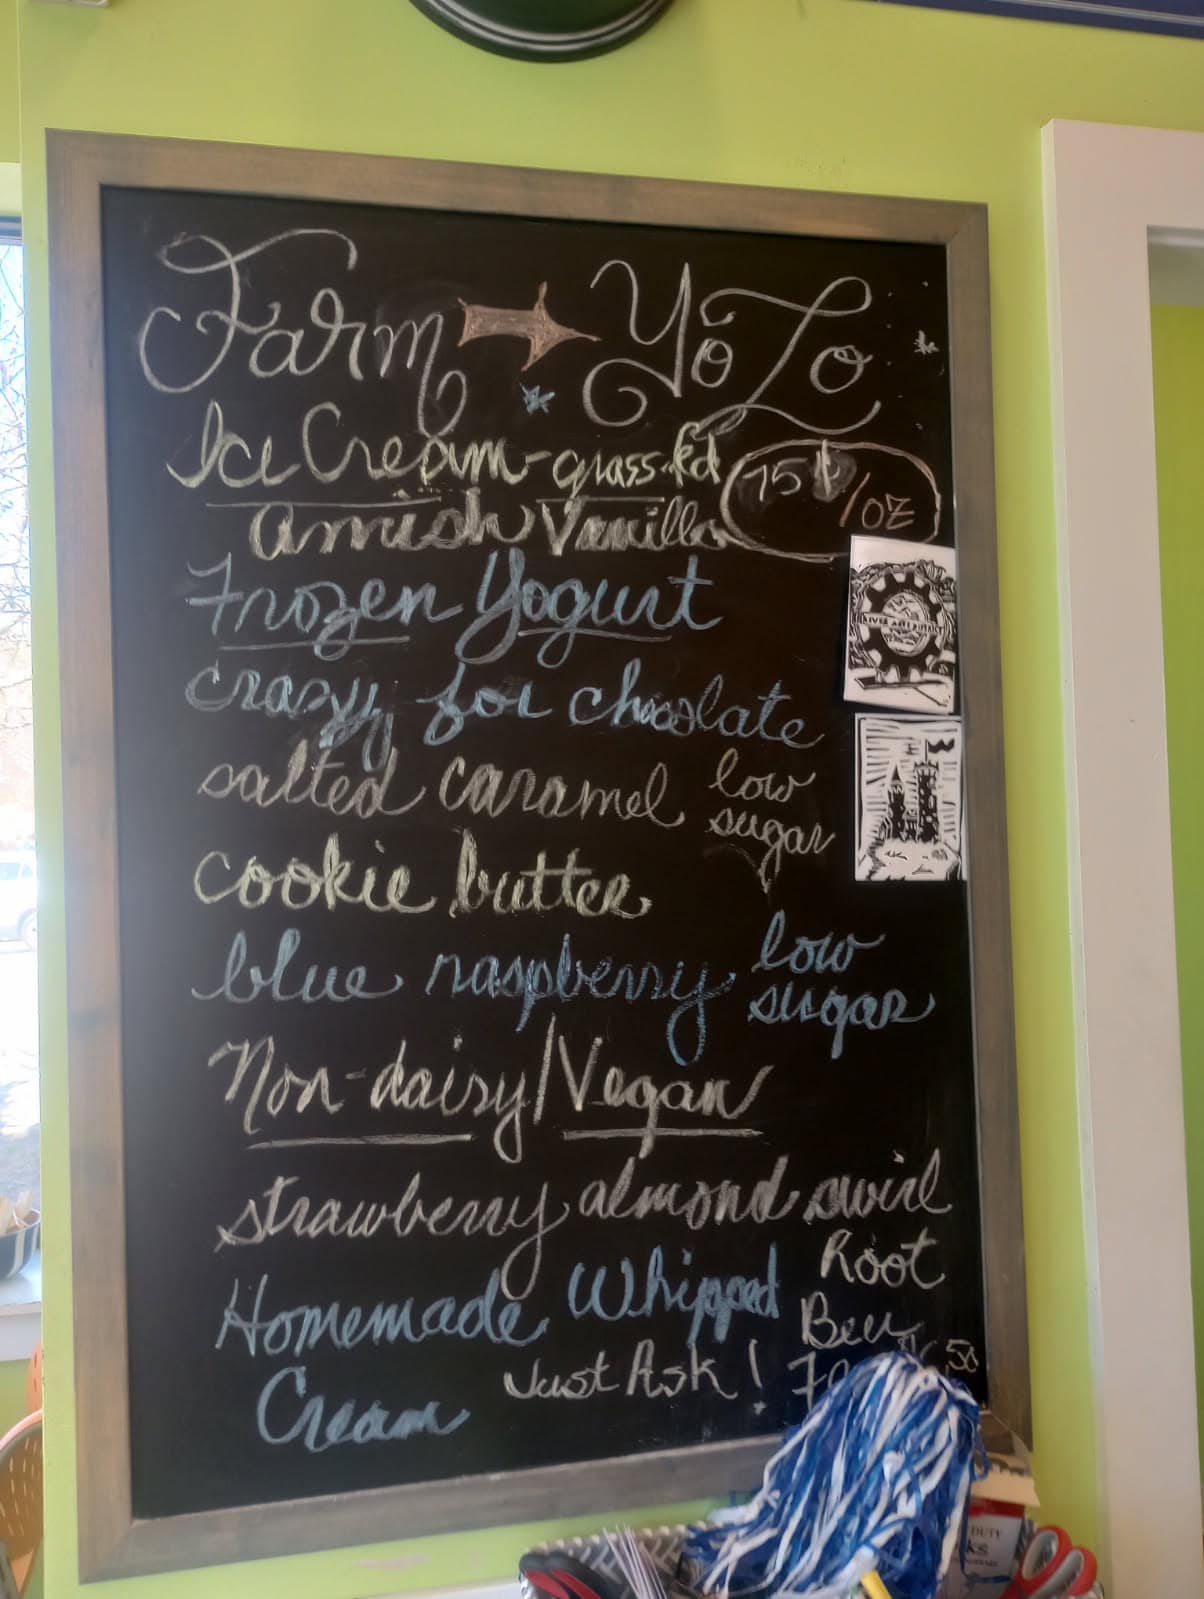 Farm YoLo
Ice Cream - grass-fed
75¢/oz
Amish Vanilla
Frozen Yogurt
crazy for chocolate
salted caramel low sugar
cookie butter
blue raspberry low sugar
Non-dairy/Vegan
strawberry almond swirl
Homemade Whipped
Cream
Just Ask!
Root
Beer
RIVER ARTS DISTRICT
DUTY